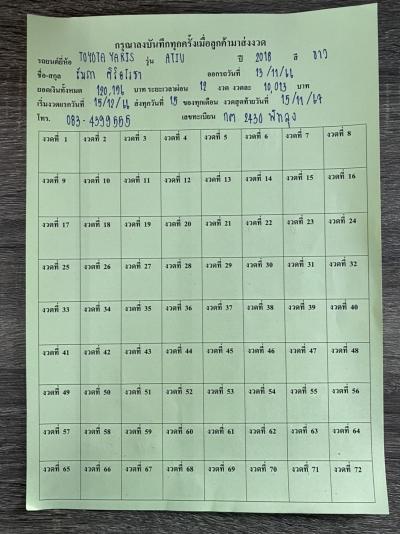 กรุณาลงบันทึกทุกครั้งเมื่อลูกค้ามาส่งงวด
รถยนต์ยี่ห้อ TOYOTA YARIS รุ่น ATIV ปี 2018 สี ขาว
ชื่อ-สกุล ออกรถวันที่ 13/11/66
ยอดเงินทั้งหมด 120,156 บาท ระยะเวลาผ่อน 12 งวด งวดละ 10,013 บาท
เริ่มงวดแรกวันที่ 15/12/66 ส่งทุกวันที่ 15 ของทุกเดือน งวดสุดท้ายวันที่ 15/11/67
โทร. 083-4399555 เลขทะเบียน กต 2430 พัทลุง
งวดที่ 1 งวดที่ 2 งวดที่ 3 งวดที่ 4 งวดที่ 5 งวดที่ 6 งวดที่ 7 งวดที่ 8
งวดที่ 9 งวดที่ 10 งวดที่ 11 งวดที่ 12 งวดที่ 13 งวดที่ 14 งวดที่ 15 งวดที่ 16
งวดที่ 17 งวดที่ 18 งวดที่ 19 งวดที่ 20 งวดที่ 21 งวดที่ 22 งวดที่ 23 งวดที่ 24
งวดที่ 25 งวดที่ 26 งวดที่ 27 งวดที่ 28 งวดที่ 29 งวดที่ 30 งวดที่ 31 งวดที่ 32
งวดที่ 33 งวดที่ 34 งวดที่ 35 งวดที่ 36 งวดที่ 37 งวดที่ 38 งวดที่ 39 งวดที่ 40
งวดที่ 41 งวดที่ 42 งวดที่ 43 งวดที่ 44 งวดที่ 45 งวดที่ 46 งวดที่ 47 งวดที่ 48
งวดที่ 49 งวดที่ 50 งวดที่ 51 งวดที่ 52 งวดที่ 53 งวดที่ 54 งวดที่ 55 งวดที่ 56
งวดที่ 57 งวดที่ 58 งวดที่ 59 งวดที่ 60 งวดที่ 61 งวดที่ 62 งวดที่ 63 งวดที่ 64
งวดที่ 65 งวดที่ 66 งวดที่ 67 งวดที่ 68 งวดที่ 69 งวดที่ 70 งวดที่ 71 งวดที่ 72